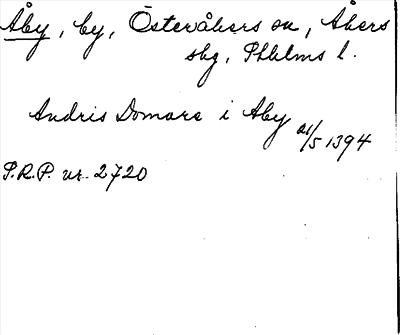 Åby, by, Österåkers sn, Åkers
skg, Sthlms l.
Andris Domare i Aby 21/5 1394
P.R.P. nr. 2720